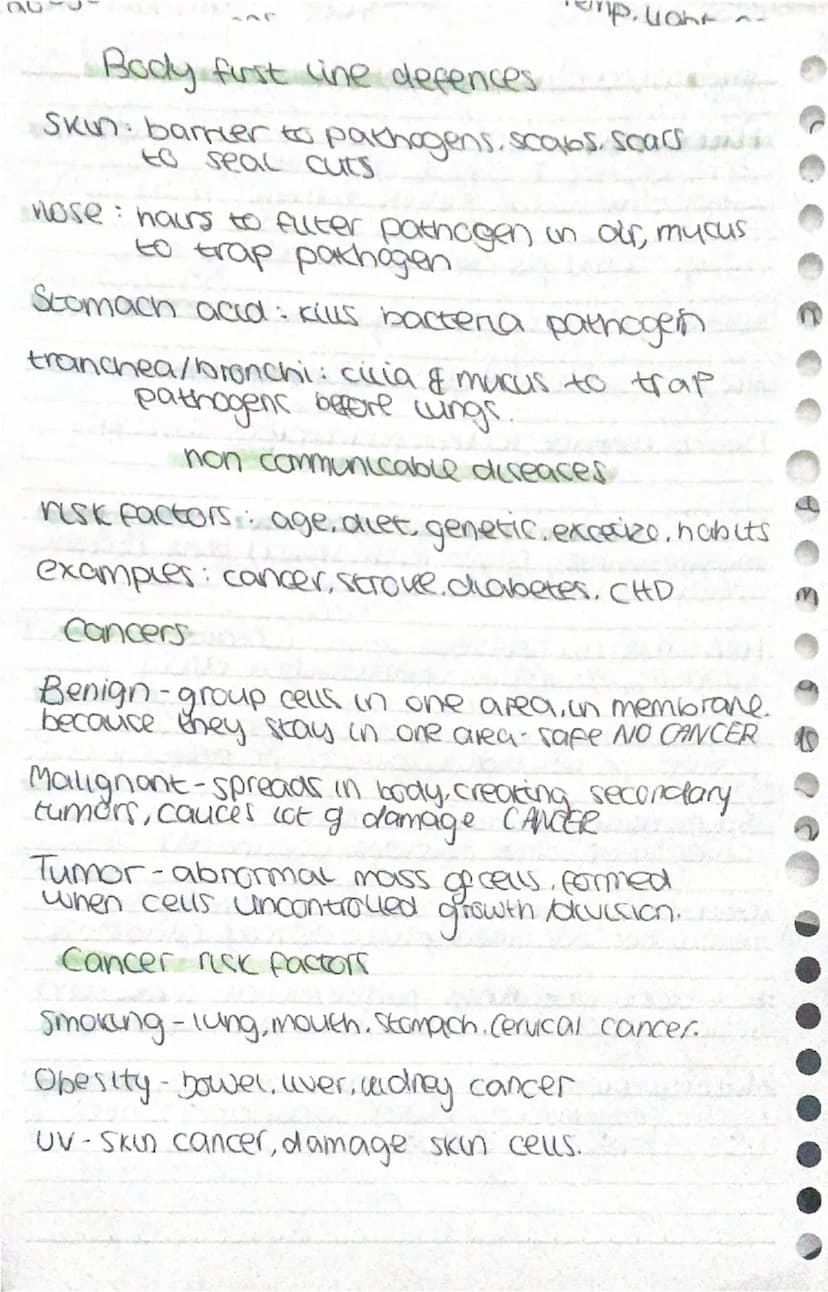 Body first line defences
Skin: barrier to pathogens, scabs, scars
to seal cuts
nose: hairs to filter pathogen in air, mucus
to trap pathogen
Stomach acid: kills bacteria pathogen
tranchea/bronchi: cilia & mucus to trap
pathogens before lungs.
non communicable diseases
risk factors: age, diet, genetic, excersize, habits
examples: cancer, stroke, diabetes, CHD
Cancers
Benign - group cells in one area, in membrane.
because they stay in one area - safe NO CANCER
Malignant - spreads in body, creating secondary
tumors, causes lot of damage CANCER
Tumor - abnormal mass of cells, formed
when cells uncontrolled growth/division.
Cancer risk factors
Smoking - lung, mouth, stomach, cervical cancer.
Obesity - bowel, liver, kidney cancer
UV - Skin cancer, damage skin cells.